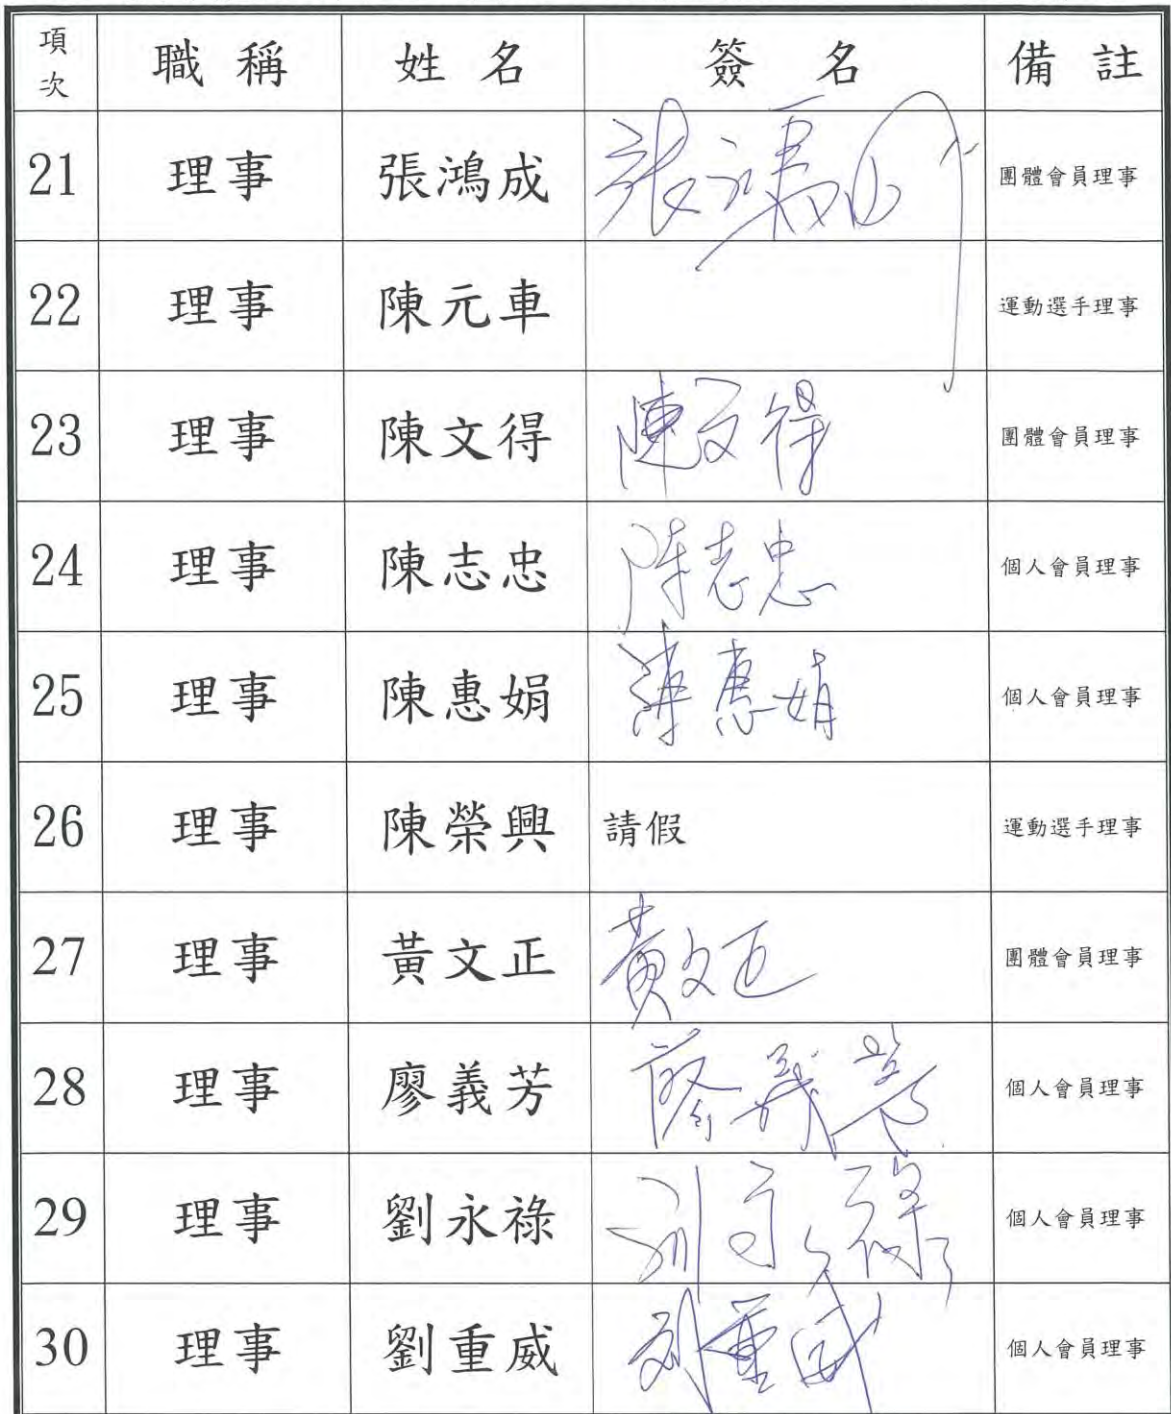 項次 職稱 姓名 簽名 備註
21 理事 張鴻成 張鴻成 團體會員理事
22 理事 陳元車 運動選手理事
23 理事 陳文得 陳文得 團體會員理事
24 理事 陳志忠 陈志忠 個人會員理事
25 理事 陳惠娟 陳惠娟 個人會員理事
26 理事 陳榮興 請假 運動選手理事
27 理事 黃文正 黃文正 團體會員理事
28 理事 廖義芳 廖義芳 個人會員理事
29 理事 劉永祿 刘永祿 個人會員理事
30 理事 劉重威 刘重威 個人會員理事